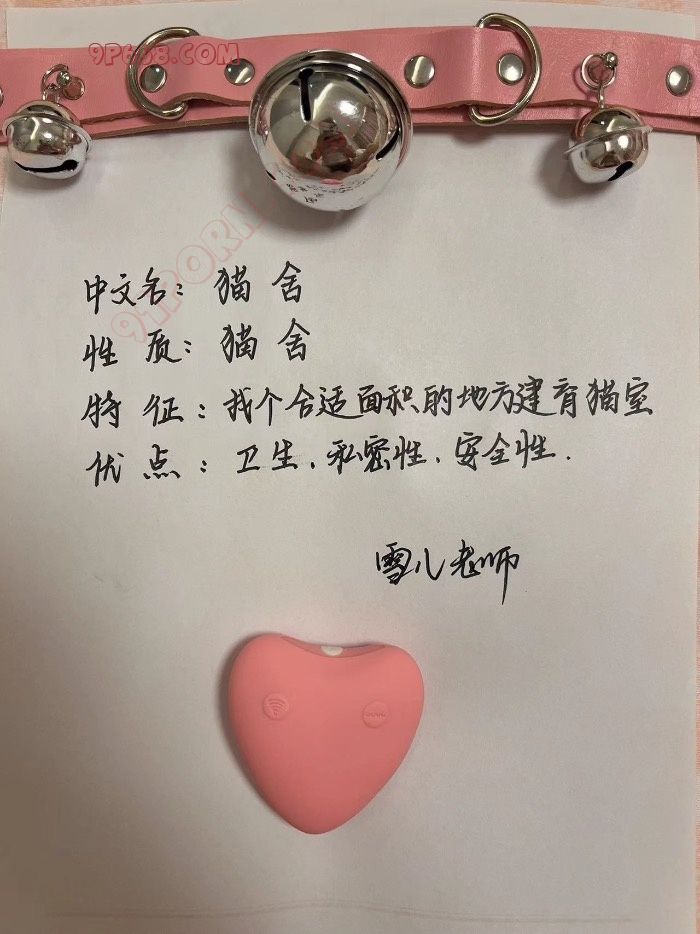 9P658.COM
91PORN
中文名：猫舍
性质：猫舍
特征：找个合适面积的地方建育猫室
优点：卫生、私密性、安全性.
雪儿老师